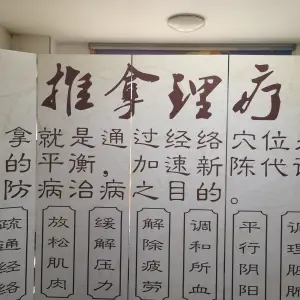 推拿理疗
拿就是通过经络穴位
的平衡，加速新陈代
防病治病之目的。
疏通经络
放松肌肉
缓解压力
解除疲劳
调和所血
平行阴阳
调理脏腑